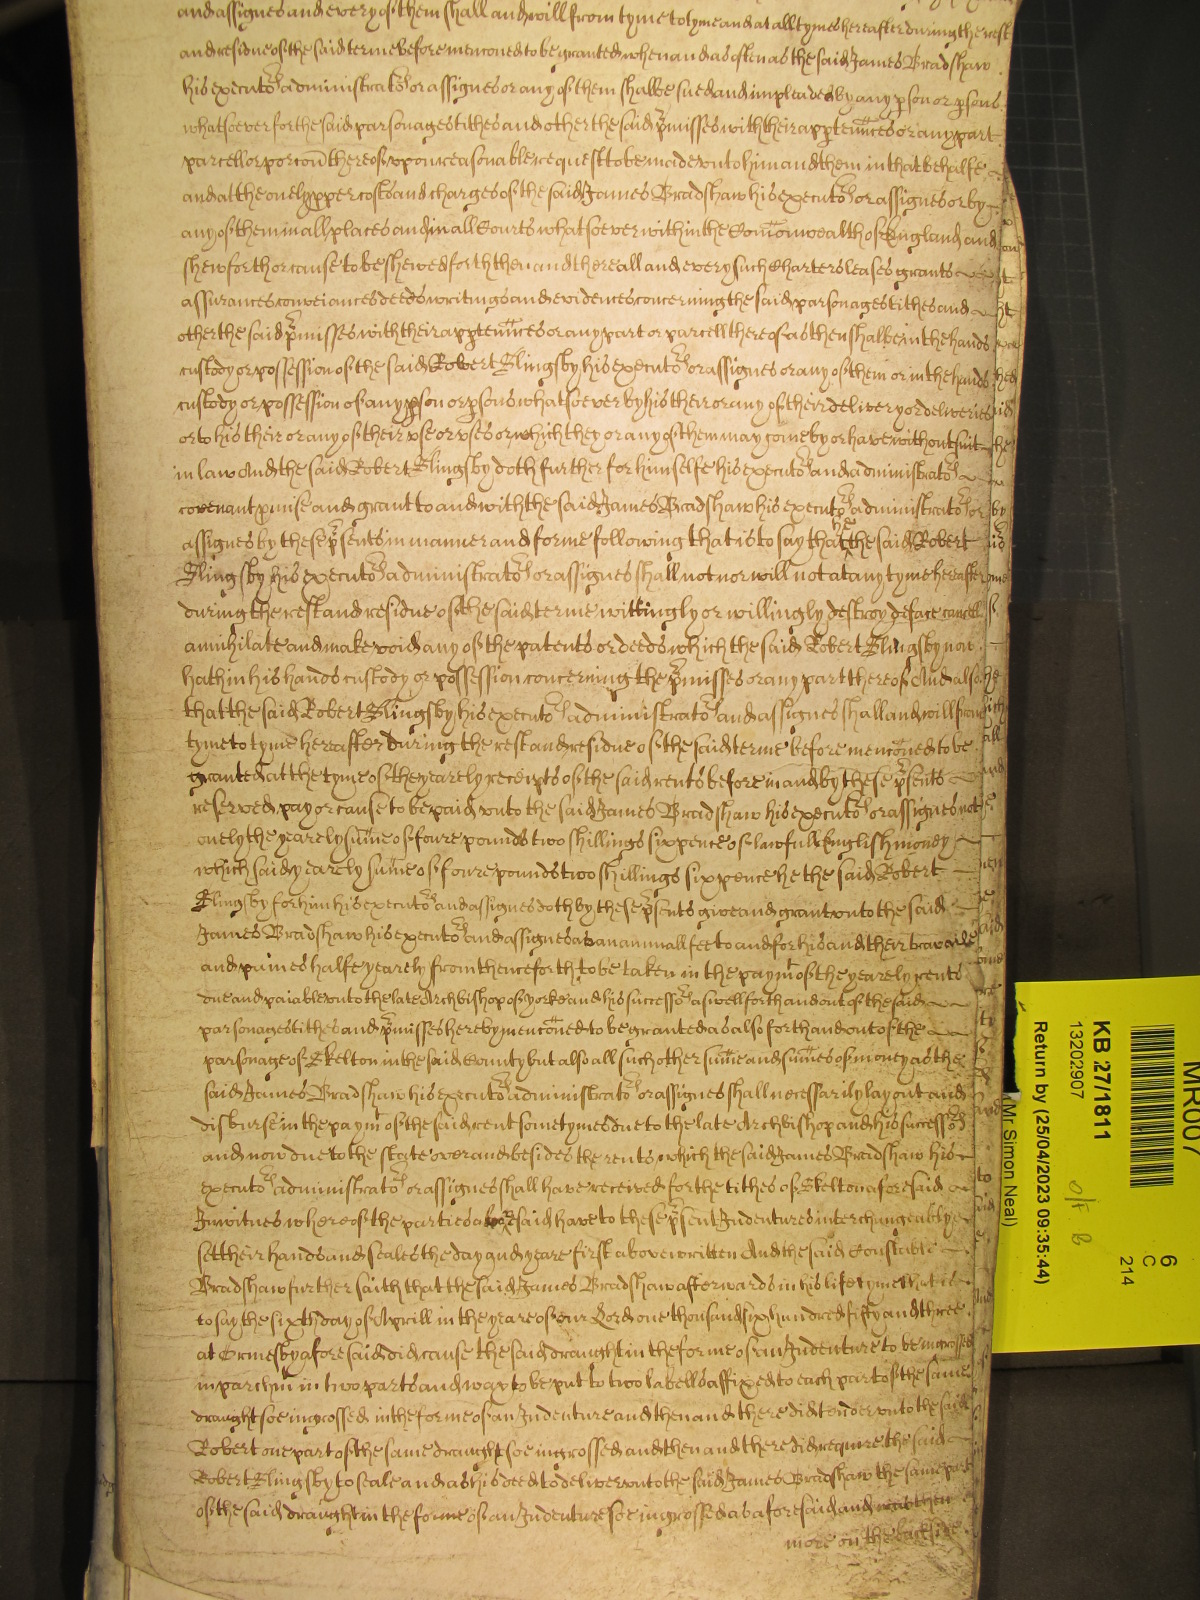 and assignes and every of them shall and will from tyme to tyme and at all tymes hereafter during the rest
and residue of the said terme before menconed to be granted when and as often as the said James Bradshaw
his executors administrators or assignes or any of them shalbe sued and impleaded by any pson or psons
whatsoever for the said parsonages tithes and other the said pmisses with their apptennces or any part
parcell or porcon thereof upon reasonable request to be made unto him and them in that behalfe
and at the onely pper costs and charges of the said James Bradshaw his executors or assignes or by
any of them in all places and in all Courts whatsoever within the Comonwealth of England and
shew forth or cause to be shewed forth then and there all and every such Charters leases grants
assurances conveiances deeds writings and evidences concerning the said parsonages tithes and
other the said pmisses with their apptennces or any part or parcell thereof as then shalbe in the hands
custody or possession of the said Robert Slingsby his executors or assignes or any of them or in the hands
custody or possession of any pson or psons whatsoever by his their or any of their delivery or deliveries
or to his their or any of their use or uses or which they or any of them may come by or have without suit
in law And the said Robert Slingsby doth further for himselfe his executors and administrators
covenant pmise and grant to and with the said James Bradshaw his executors administrators or
assignes by these psents in manner and forme following that is to say that he the said Robert
Slingsby his executors administrators or assignes shall not nor will not at any tyme hereafter
during the rest and residue of the said terme wittingly or willingly destroy deface cancell
annihilate and make void any of the patents or deeds which the said Robert Slingsby now
hath in his hands custody or possession concerning the pmisses or any part thereof And also
that the said Robert Slingsby his executors administrators and assignes shall and will from
tyme to tyme hereafter during the rest and residue of the said terme before menconed to be
granted at the tyme of the yearely receipts of the said rents before in and by these psents
reserved pay or cause to be paid unto the said James Bradshaw his executors or assignes not
onely the yearely sume of foure pounds two shillings sixpence of lawfull English money
which said yearely sume of foure pounds two shillings sixpence he the said Robert
Slingsby for him his executors and assignes doth by these psents give and grant unto the said
James Bradshaw his executors and assignes as an annuall fee to and for his and their travaile
and paines halfe yearely from thenceforth to be taken in the paymt of the yearely rents
due and paiable unto the late Archbishop of Yorke and his successors aswell forth and out of the said
parsonages tithes and pmisses hereby menconed to be granted as also forth and out of the
parsonage of Skelton in the said County but also all such other sume and sumes of money as the
said James Bradshaw his executors administrators or assignes shall necessarily lay out and
disburse in the paymt of the said rent sometymes due to the late Archbishop and his successors
and now due to the state over and besides the rents which the said James Bradshaw his
executors administrators or assignes shall have received for the tithes of Skelton aforesaid
In witnes whereof the parties abovesaid have to these psent Indentures interchangeably
set their hands and seales the day and yeare first above written And the said Constable
Bradshaw further saith that the said James Bradshaw afterwards in his life tyme that is
to say the sixth day of Aprill in the yeare of our Lord one thousand six hundred fifty and three
at Ormesby aforesaid did cause the said draught in the forme of an Indenture to be ingrossed
in parchmt in two parts and wax to be put to two labells affixed to each part of the same
draught soe ingrossed in the forme of an Indenture and then and there did tender unto the said
Robert one part of the same draught soe ingrossed and then and there did require the said
Robert Slingsby to seale and as his deed to deliver unto the said James Bradshaw the same part
of the said draught in the forme of an Indenture soe ingrossed as aforesaid and was then
more on the backside
MR007
6
C
214
KB 27/1811
13202907
o/f B
Return by (25/04/2023 09:35:44)
(Mr Simon Neal)